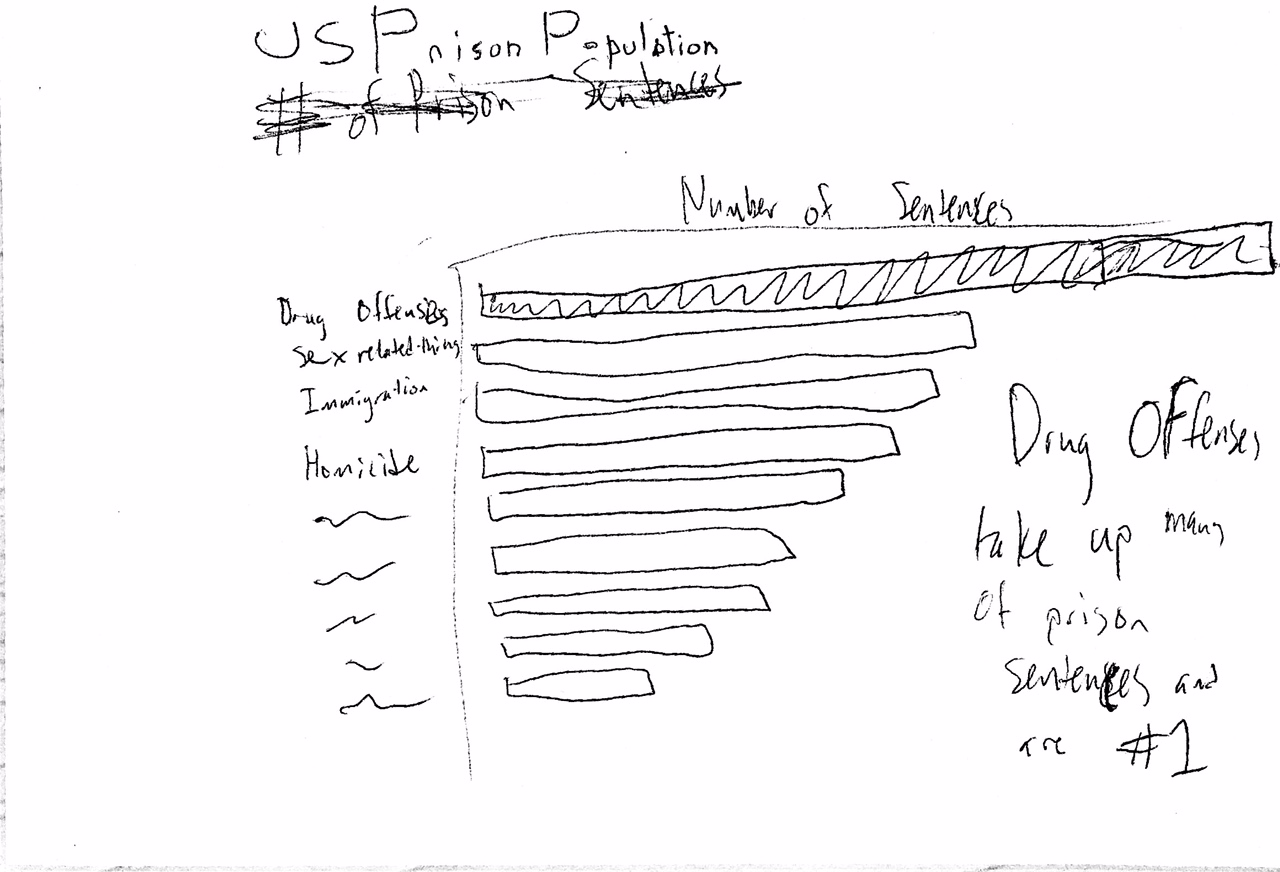 US Prison Population
# of Prison Sentences
Number of Sentences
Drug Offenses
Sex related thing
Immigration
Homicide
Drug Offenses
take up many
of prison
sentences and
are #1